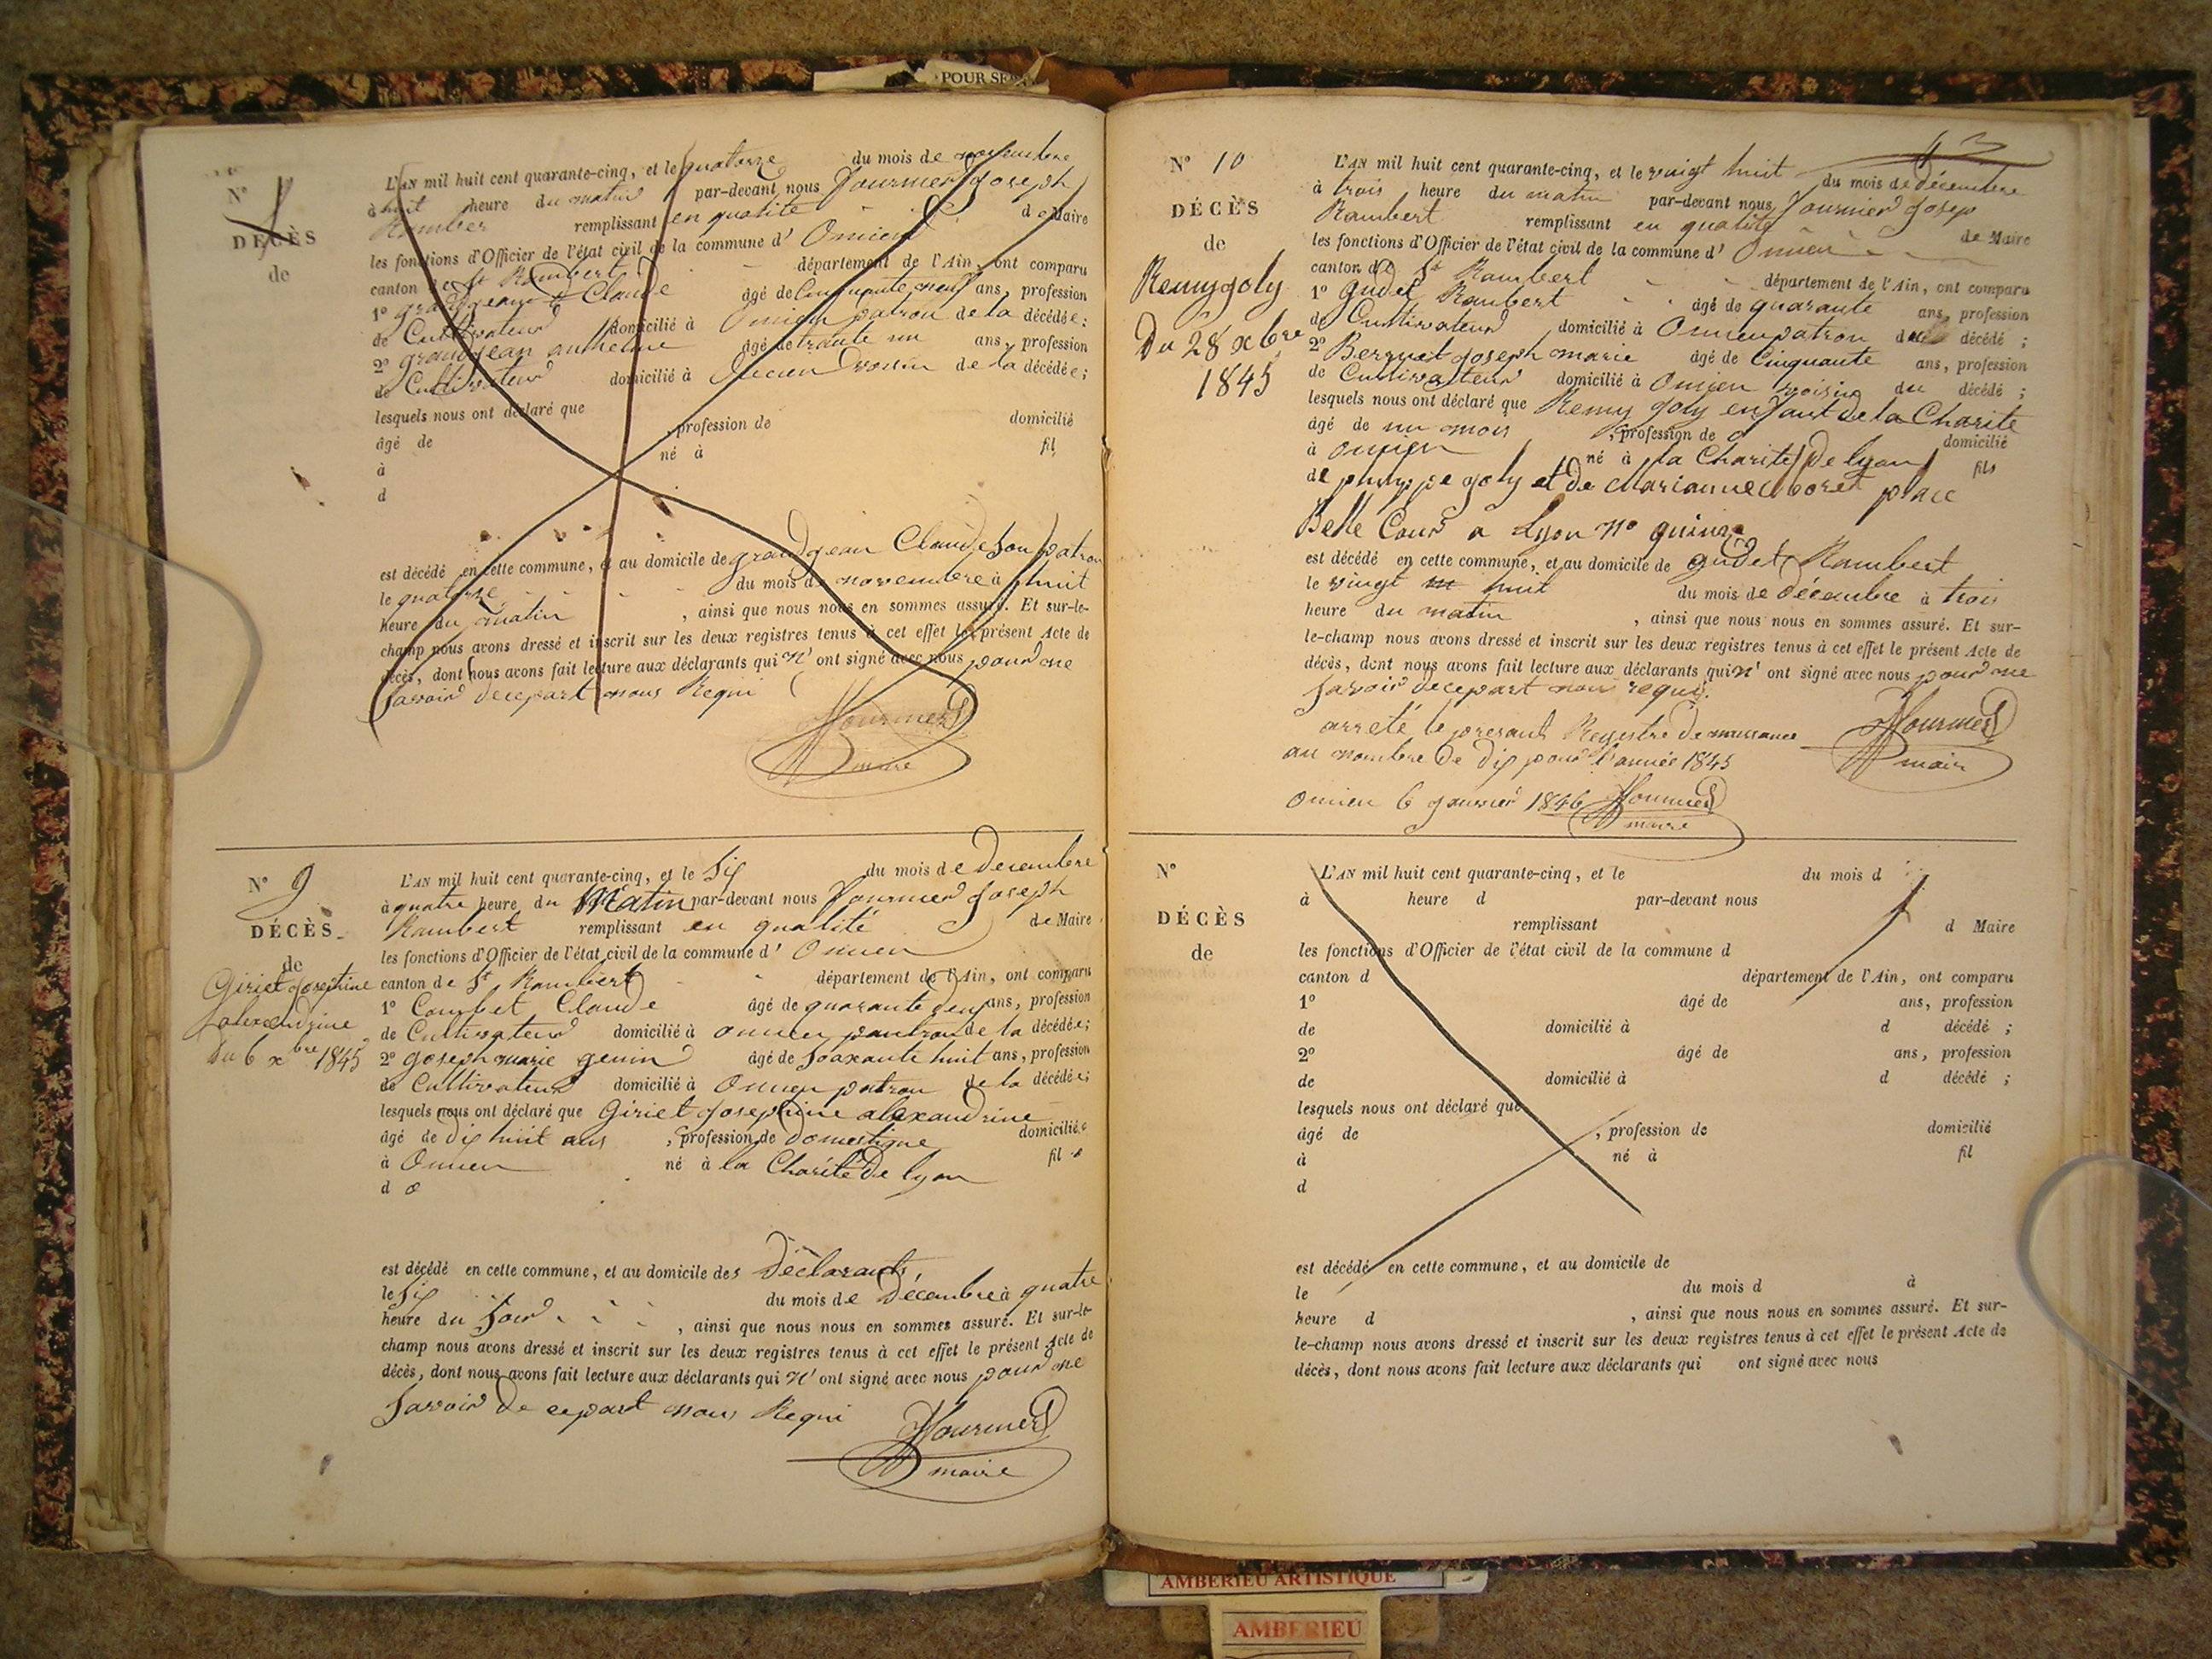 POUR SE
N°
DÉCÈS
de
L'AN mil huit cent quarante-cinq, et le quatorze du mois de novembre
à huit heure du matin par-devant nous Fournier Joseph
Rambert remplissant en qualité de Maire
les fonctions d'Officier de l'état civil de la commune d' Oncieu
canton de St Rambert département de l'Ain, ont comparu
1° grandjean Claude âgé de Cinquante neuf ans, profession
de Cultivateur domicilié à Oncieu patron de la décédée;
2° grandjean anthelme âgé de trante un ans, profession
de Cultivateur domicilié à Oncieu voisin de la décédée;
lesquels nous ont déclaré que
âgé de , profession de domicilié
à né à fil
d
est décédé en cette commune, et au domicile de grandjean Claude Son patron
le quatorze du mois de novembre à huit
heure du matin , ainsi que nous nous en sommes assuré. Et sur-le-
champ nous avons dressé et inscrit sur les deux registres tenus à cet effet le présent Acte de
décès, dont nous avons fait lecture aux déclarants qui n' ont signé avec nous pour ne
Savoir de cepart nous Requi
Fournier
maire
N° 9
DÉCÈS
de
Giriet Josephine
alexandrine
Du 6 xbre 1845
L'AN mil huit cent quarante-cinq, et le Six du mois de Decembre
à quatre heure du Matin par-devant nous Fournier Joseph
Rambert remplissant en qualité de Maire
les fonctions d'Officier de l'état civil de la commune d' Oncieu
canton de St Rambert département de l'Ain, ont comparu
1° Combet Claude âgé de quarante deux ans, profession
de Cultivateur domicilié à oncieu pautron de la décédée;
2° Joseph marie genin âgé de Soaxante huit ans, profession
de Cultivateur domicilié à Oncieu patron de la décédée;
lesquels nous ont déclaré que Giriet Josephine alexandrine
âgé de dix huit ans , profession de domestique domiciliée
à Oncieu né à la Charité De lyon fil
d
est décédé en cette commune, et au domicile des Déclarants,
le Six du mois de Décembre à quatre
heure du Soir , ainsi que nous nous en sommes assuré. Et sur-le-
champ nous avons dressé et inscrit sur les deux registres tenus à cet effet le présent Acte de
décès, dont nous avons fait lecture aux déclarants qui n' ont signé avec nous pour ne
Savoir De cepart nous Requi
Fournier
maire
N° 10
DÉCÈS
de
Remy joly
Du 28 xbre
1845
L'AN mil huit cent quarante-cinq, et le vingt huit du mois de décembre
à trois heure du matin par-devant nous Fournier Josep
Rambert remplissant en qualité de Maire
les fonctions d'Officier de l'état civil de la commune d' Oncieu
canton de St Rambert département de l'Ain, ont comparu
1° gudet Rambert âgé de quarante ans, profession
de Cultivateur domicilié à Oncieu patron du décédé ;
2° Berguet Joseph marie âgé de Cinquante ans, profession
de Cultivateur domicilié à Oncieu voisin du décédé ;
lesquels nous ont déclaré que Remy joly enfant de la Charité
âgé de un mois , profession de domicilié
à oncieu né à la Charité De lyon fils
de phlippe joly et de Marianne place
Belle Cour a Lyon n° quinze
est décédé en cette commune, et au domicile de gudet Rambert
le vingt huit du mois de décembre à trois
heure du matin , ainsi que nous nous en sommes assuré. Et sur-
le-champ nous avons dressé et inscrit sur les deux registres tenus à cet effet le présent Acte de
décès, dont nous avons fait lecture aux déclarants qui n' ont signé avec nous pour ne
Savoir de cepart nous requi.
arrêté le presant Registre de naissance
au nombre de dix pour l'année 1845
Oncieu 6 janvier 1846 Fournier
maire
Fournier
maire
N°
DÉCÈS
de
L'AN mil huit cent quarante-cinq, et le du mois d
à heure d par-devant nous
remplissant d Maire
les fonctions d'Officier de l'état civil de la commune d
canton d département de l'Ain, ont comparu
1° âgé de ans, profession
de domicilié à d décédé ;
2° âgé de ans, profession
de domicilié à d décédé ;
lesquels nous ont déclaré que
âgé de , profession de domicilié
à né à fil
d
est décédé en cette commune, et au domicile de
le du mois d à
heure d , ainsi que nous nous en sommes assuré. Et sur-
le-champ nous avons dressé et inscrit sur les deux registres tenus à cet effet le présent Acte de
décès, dont nous avons fait lecture aux déclarants qui ont signé avec nous
AMBERIEU ARTISTIQUE
AMBERIEU